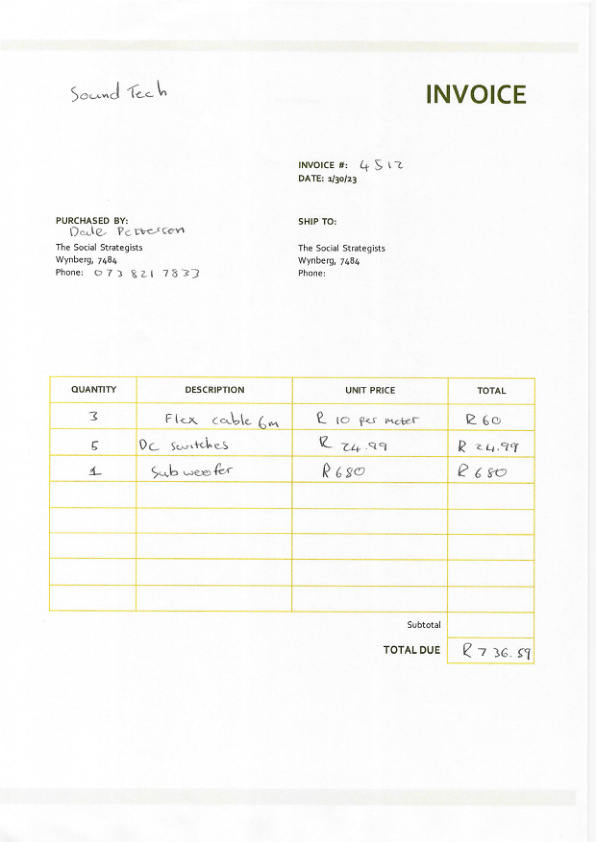 Sound Tech
INVOICE
INVOICE #: 4512
DATE: 1/30/23
PURCHASED BY:
Dale Petterson
The Social Strategists
Wynberg, 7484
Phone: 073 821 7833
SHIP TO:
The Social Strategists
Wynberg, 7484
Phone:
QUANTITY DESCRIPTION UNIT PRICE TOTAL
3 Flex cable 6m R 10 per meter R 60
5 DC switches R 24.99 R 24.99
1 Sub weefer R 680 R 680
Subtotal
TOTAL DUE R 736.59